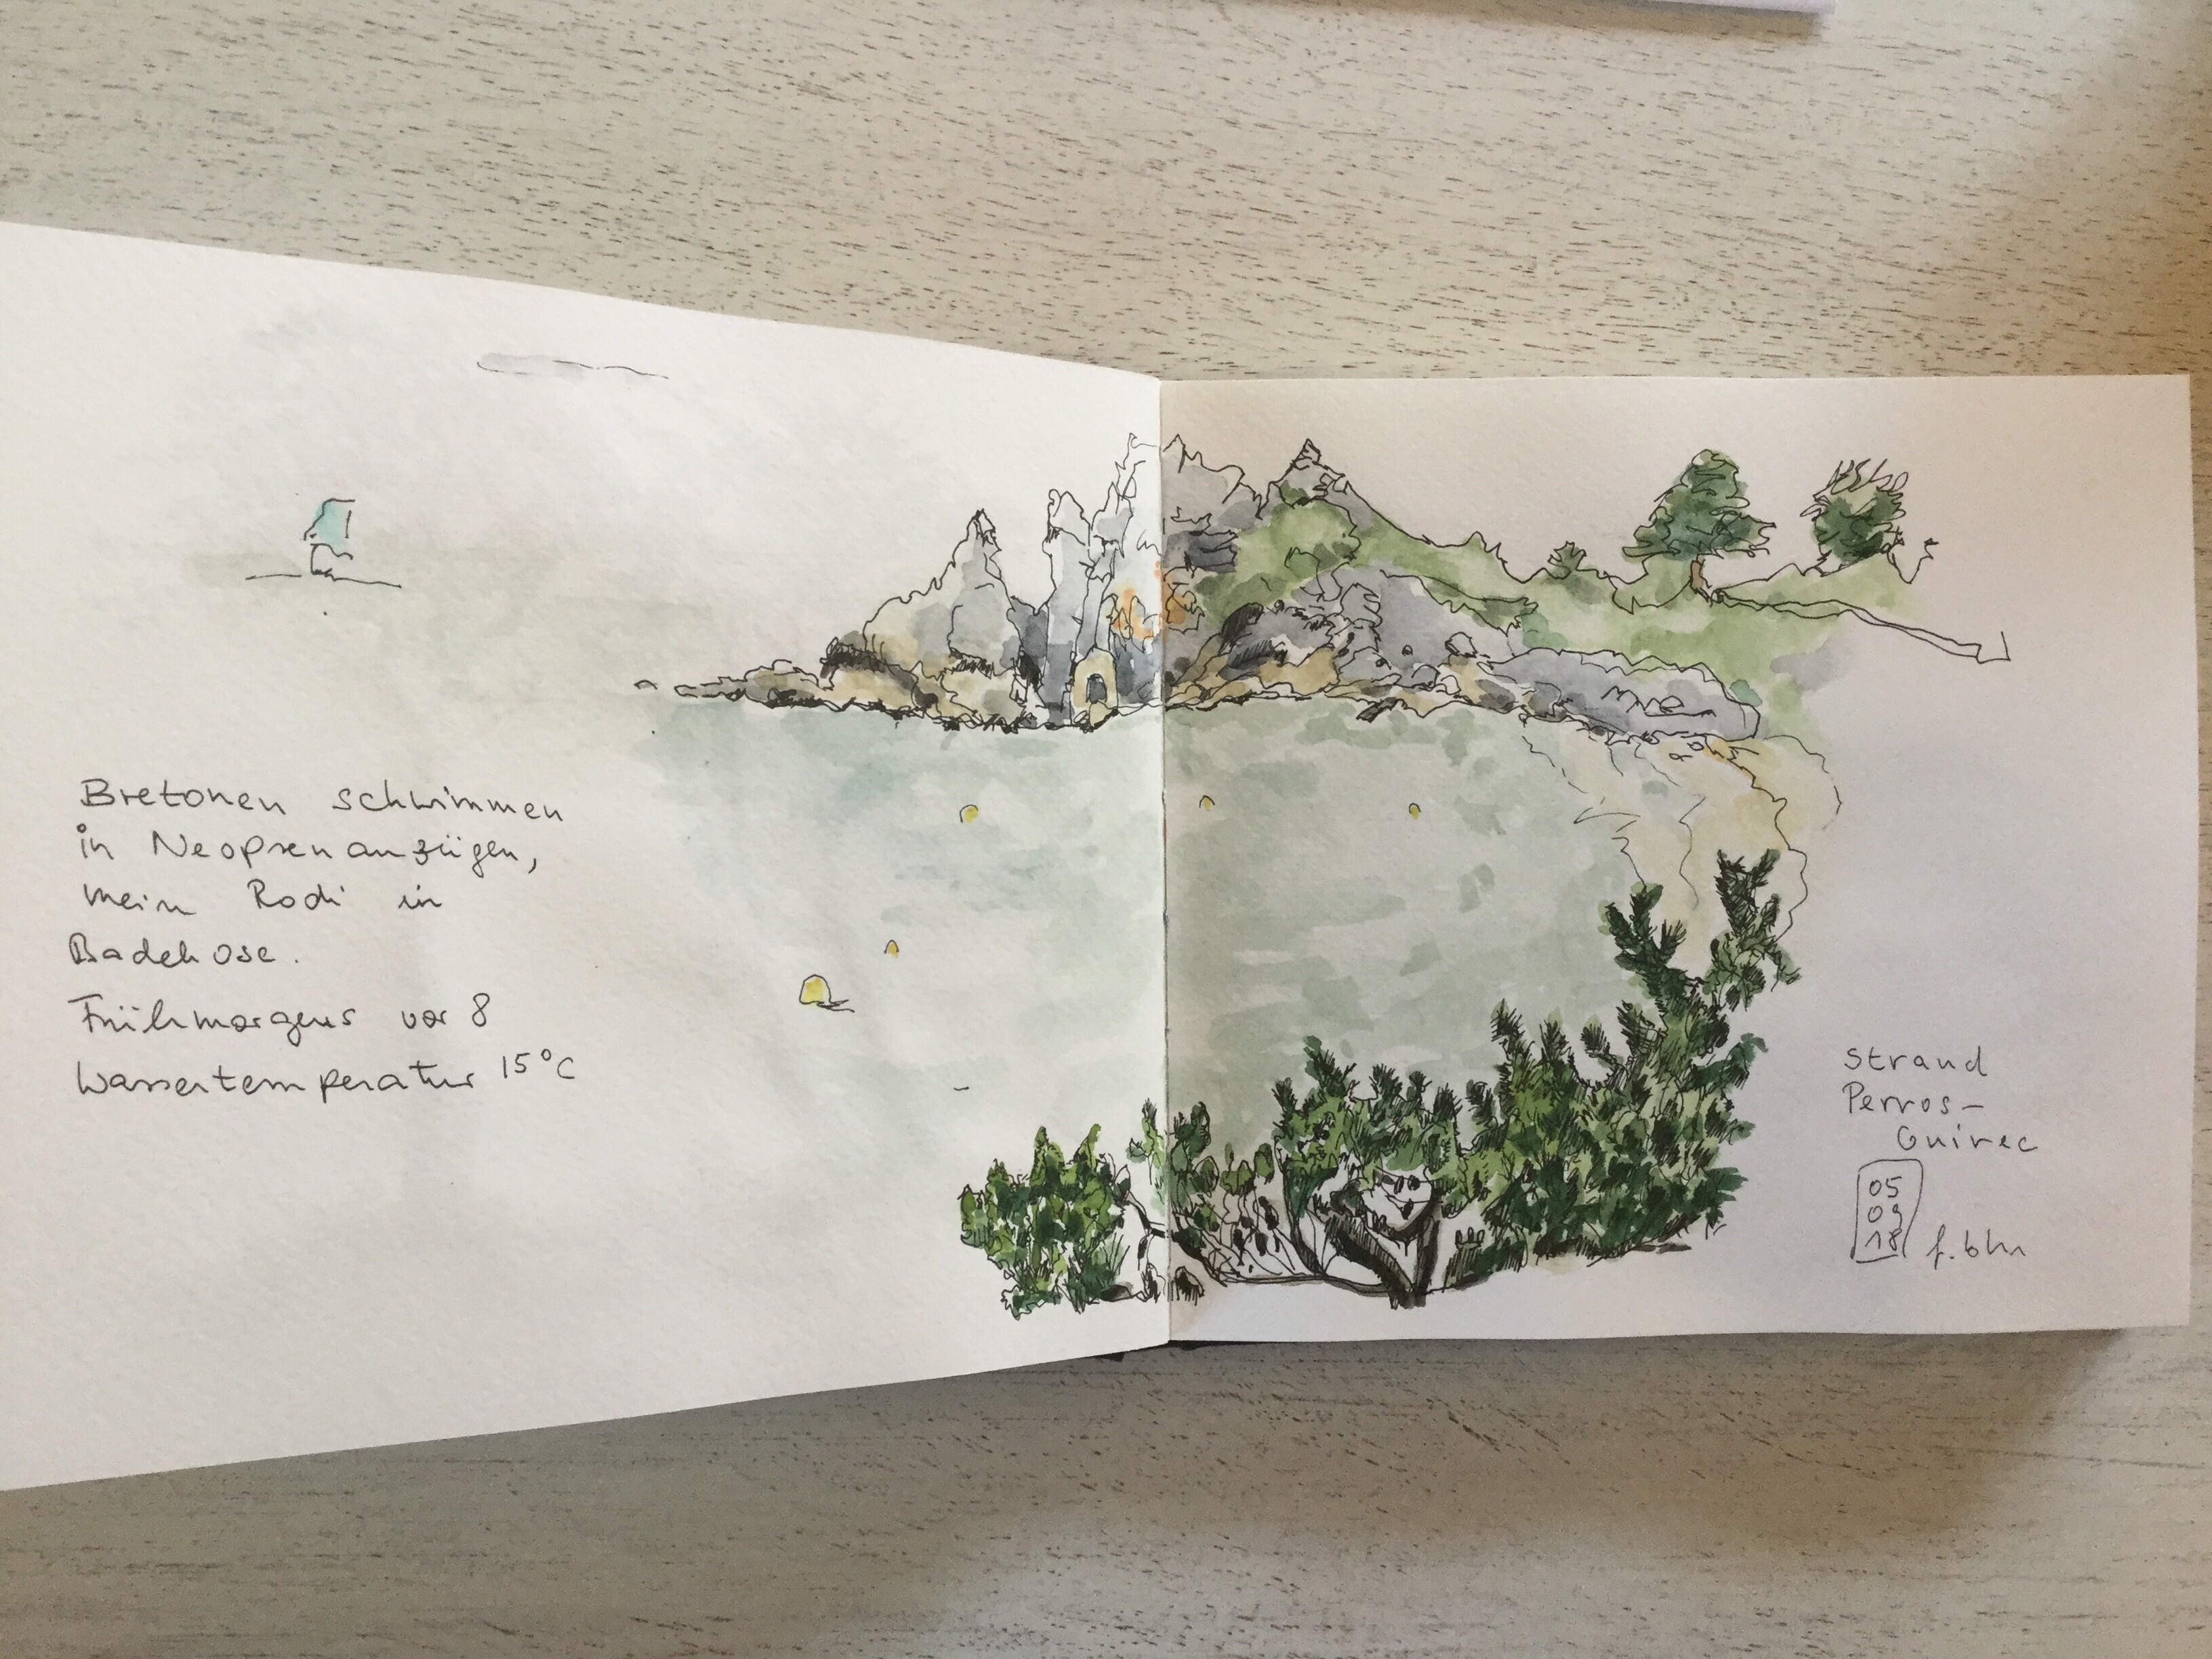 Bretonen schwimmen
in Neoprenanzügen,
mein Rodi in
Badehose.
Frühmorgens vor 8
Wassertemperatur 15°C
Strand
Perros-
Guirec
05
09
18